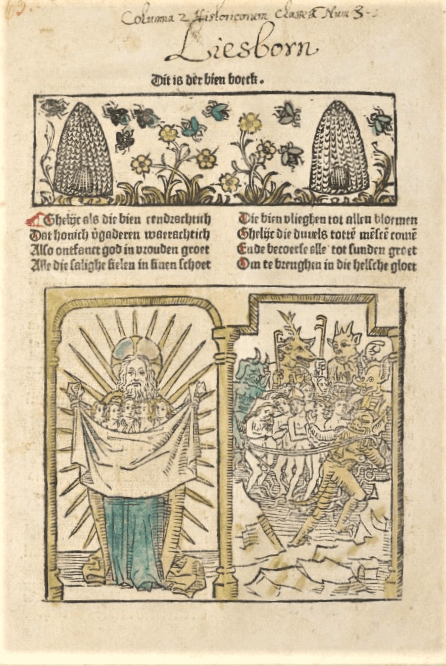 Columna 2 Historicorum Classe Num 3.
Liesborn
Dit is der bien boeck.
Ghelijc als die bien eendrachtich
Dat honich v̄gaderen waerachtich
Also ontfanct god in vrouden groet
Alle die salighe sielen in sinen schoet
Die bien vlieghen tot allen bloemen
Ghelijc die duvels tottē mēscē comē
Ende becoerse alle tot sunden groet
Om te brenghen in die helsche gloet